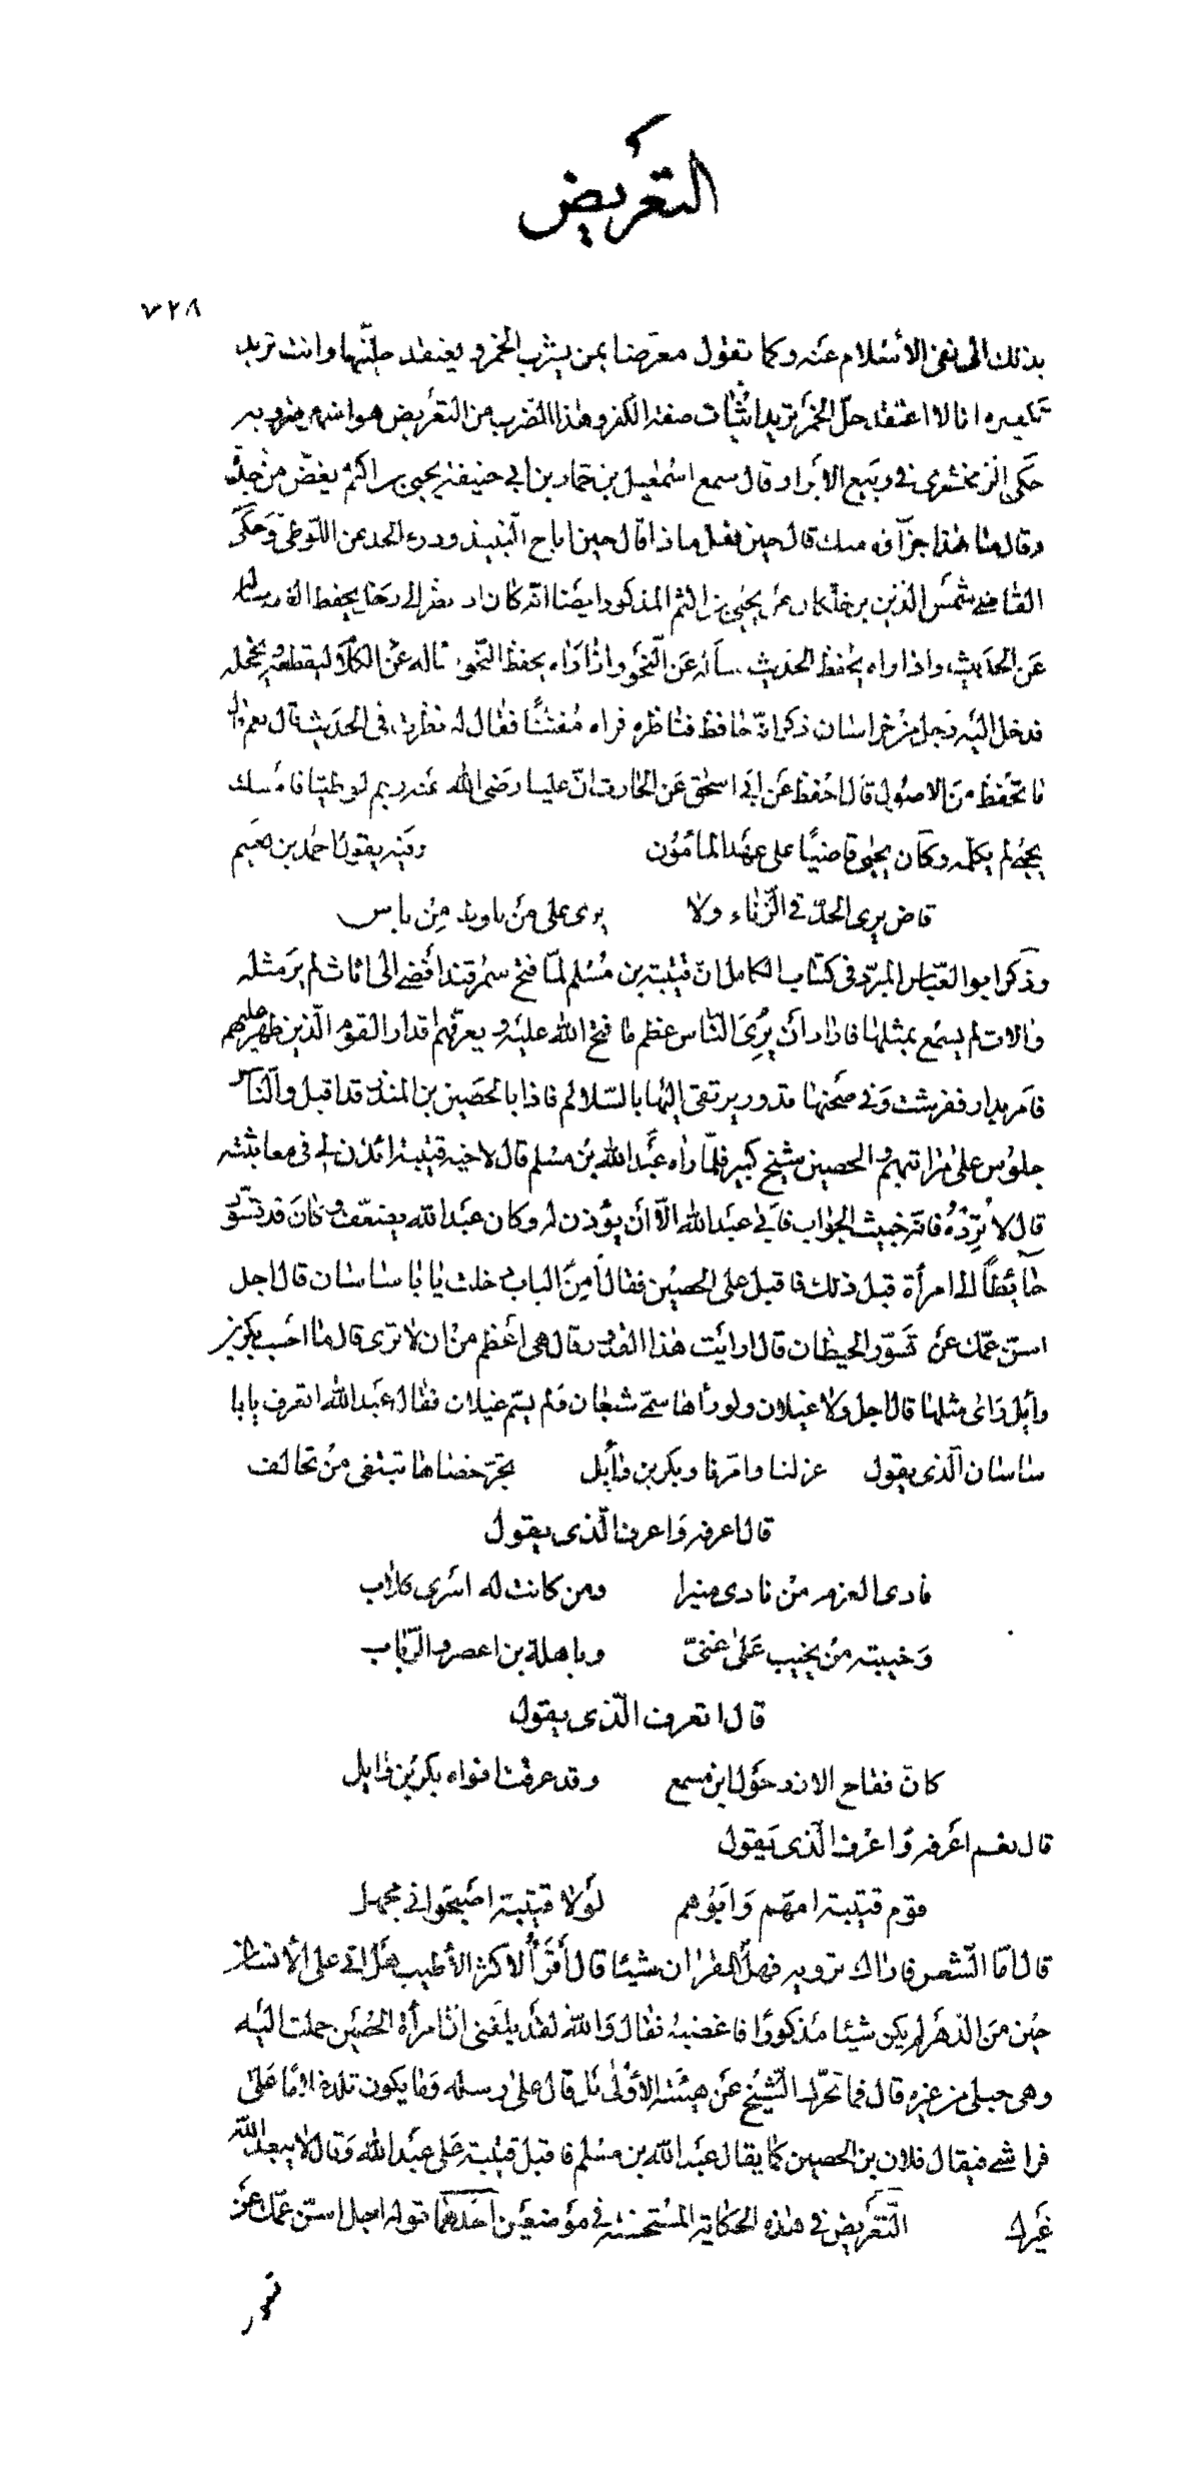 التعريض
٧٢٨
بذلك الى نفى الاسلام عنه وكما تقول معرضا بمن يشرب الخمر و يعتقد حليتها وانت تريد
تكفيره انا لا اعتقد حل الخمر تريد اثبات صفة الكفر وهذا الضرب من التعريض هو اشهر ضروبه
حكى الزمخشرى فى ربيع الابرار قال سمع اسمعيل بن حماد بن ابي حنيفة يحيى بن اكثم يغض من جده
وقال ما هذا جزآؤه منك قال حين فعل ماذا قال حين اباح النبيذ ودرء الحد عن اللوطى وحكى
القاضى شمس الدين بن خلكان عن يحيى بن اكثم المذكور ايضا انه كان اذا نظر الى رجل يحفظ الفقه ساله
عن الحديث واذا راه يحفظ الحديث سأله عن النحو واذا راه يحفظ النحو ساله عن الكلام ليقطعه ويخجله
فدخل اليه رجل من خراسان ذكى انه حافظ فناظره فراه مفتنا فقال له نظرت فى الحديث قال نعم قال
ما تحفظ من الاصول قال احفظ عن ابى اسحق عن الحارث ان عليا رضى الله عنه رجم لوطيا فامسك
يحيى لم يكلمه وكان يحيى قاضيا على عهد المامون وفيه يقول احمد بن نعيم
قاض يرى الحد فى الزناء ولا يرى على من يلوط من باس
وذكر ابو العباس المبرد فى كتاب الكامل ان قتيبة بن مسلم لما فتح سمرقند افضى الى اثاث لم ير مثله
والات لم يسمع بمثلها فاراد أن يرى الناس عظم ما فتح الله عليه و يعرفهم اقدار القوم الذين ظهر عليهم
فامر بدار ففرشت وفى صحنها قدور يرتقى اليها بالسلالم فاذا بالحضين بن المنذر قد اقبل والناس
جلوس على مراتبهم والحصين شيخ كبير فلما راه عبد الله بن مسلم قال لاخيه قتيبة ائذن لى فى معاتبته
قال لا تزده فانه خبيث الجواب فابى عبد الله الا أن يؤذن له وكان عبد الله يضعف وكان قد تسور
حائطا الى امرأة قبل ذلك فاقبل على الحصين فقال أمن الباب دخلت يا ابا ساسان قال اجل
اسن عمك عن تسور الحيطان قال ارايت هذا القدور قال هى اعظم من ان لا ترى قال ما احسب بكر بن
وايل راى مثلها قال اجل ولا عيلان ولو رأها سمى شبعان ولم يسم عيلان فقال عبد الله اتعرف يا ابا
ساسان الذى يقول عزلنا وامرنا وبكر بن وأيل تجر خصاها تبتغى من تحالف
قال اعرفه واعرف الذى يقول
فادى الغرم من نادى مشيرا ومن كانت له اسرى كلاب
وخيبة من يخيب على غنى وباهلة بن اعصر والرباب
قال اتعرف الذى يقول
كان فقاح الازد حول ابن مسمع وقد عرقت افواه بكر بن وايل
قال نعم اعرفه واعرف الذى يقول
قوم قتيبة امهم وابوهم لولا قتيبة اصبحوا فى مجهل
قال اما الشعر فاراك ترويه فهل تقرا من القران شيئا قال أقرأ الاكثر الاطيب هل اتى على الانسان
حين من الدهر لم يكن شيئا مذكورا فاغضبه فقال والله لقد بلغنى ان امرأة الحصين حملت اليه
وهى حبلى من غيره قال فما تحرك الشيخ عن هيئته الاولى بل قال على رسله وما يكون تلد غلاما على
فراشى فيقال فلان بن الحصين كما يقال عبد الله بن مسلم فاقبل قتيبة على عبد الله وقال لا يبعد الله
غيرك التعريض فى هذه الحكاية المستحسنة فى موضعين احدهما قوله اجل اسن عمك عن
تسور